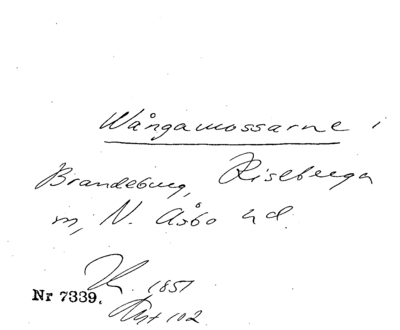 Wångamossarne i
Brandeburg, Riseberga
m, N. Åsbo hd.
1851
Nr 7339.
Akt 102.